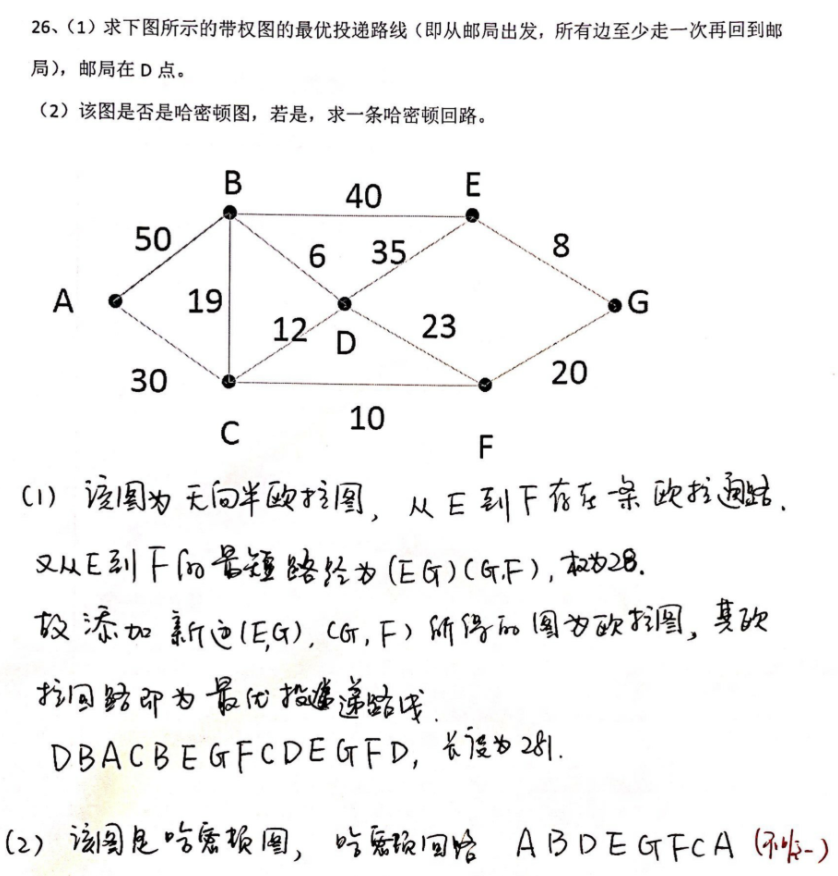 26、（1）求下图所示的带权图的最优投递路线（即从邮局出发，所有边至少走一次再回到邮
局），邮局在 D 点。
（2）该图是否是哈密顿图，若是，求一条哈密顿回路。
B
40
E
50
6
35
8
A
19
G
12
D
23
30
20
10
C
F
(1) 该图为无向半欧拉图，从E到F存在一条欧拉通路.
又从E到F的最短路径为(EG)(G,F)，权为28.
故添加新边(E,G),(G,F)所得的图为欧拉图，其欧
拉回路即为最优投递路线.
DBACBEGFCDEGFD，长度为281.
(2) 该图是哈密顿图，哈密顿回路 ABDEGFCA (不唯一)